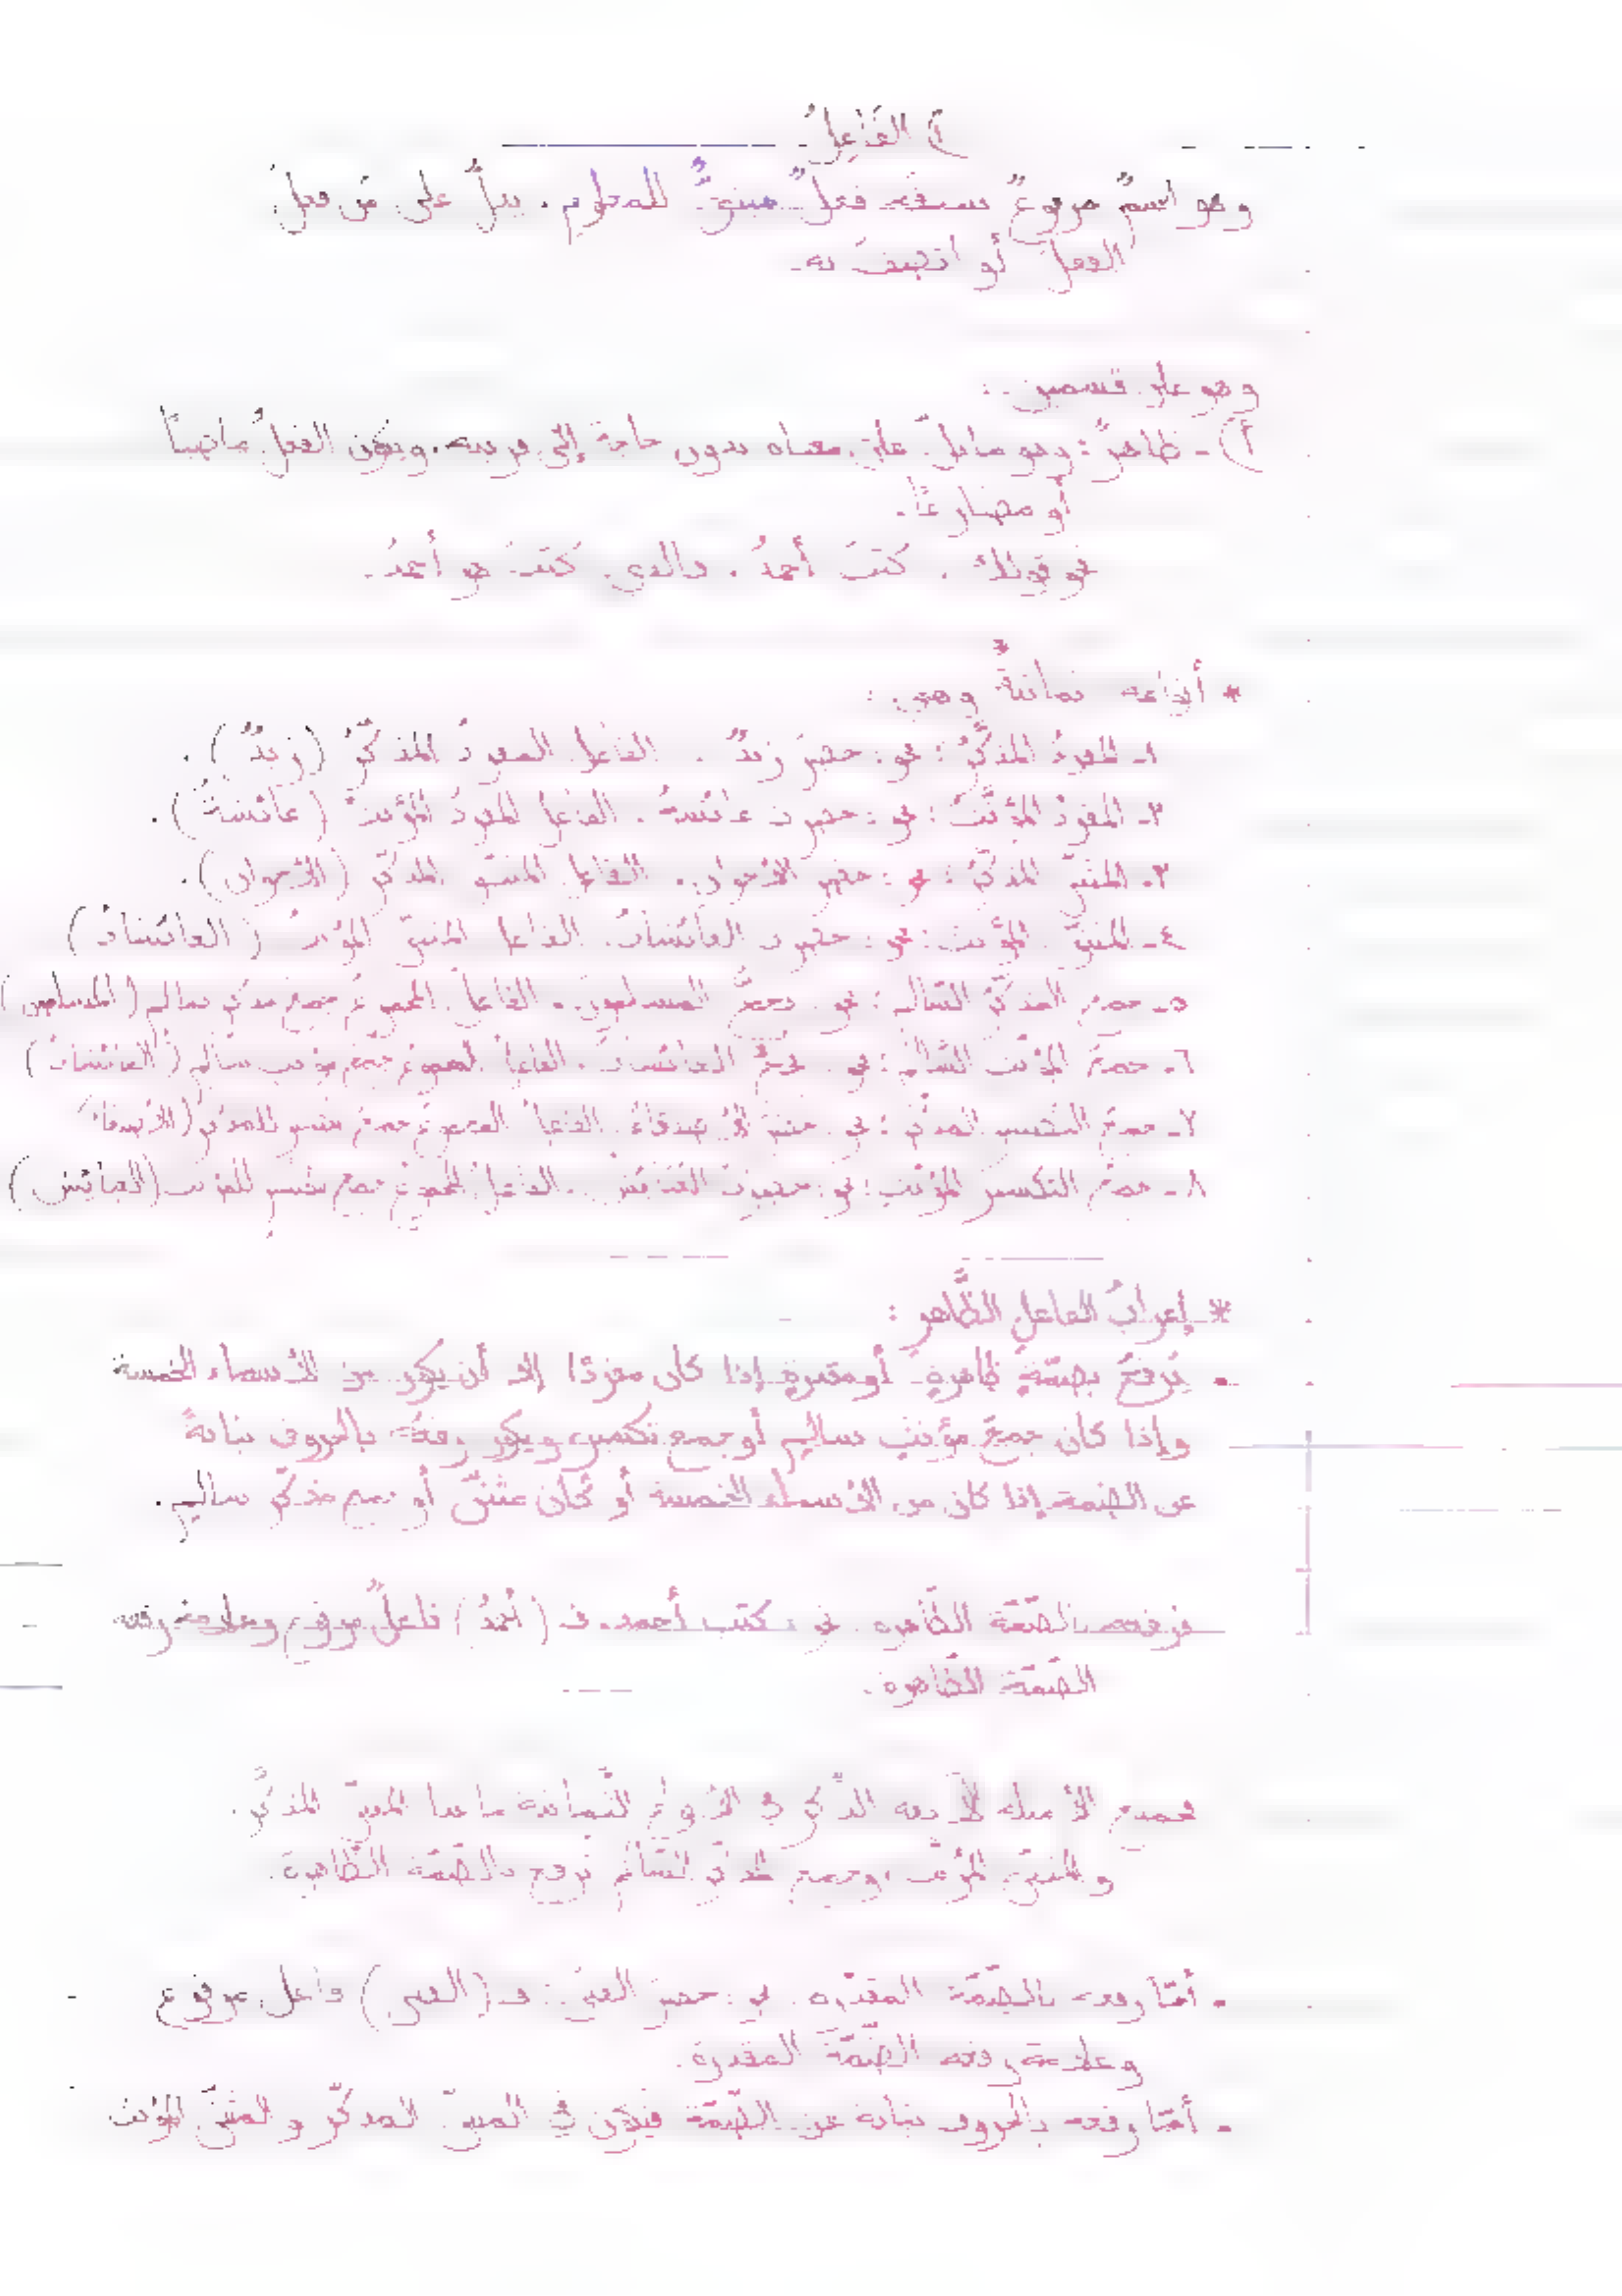 ١) الفَاعِلُ
وهو اسمٌ مرفوعٌ يسبقه فعلٌ مبنيٌّ للمعلوم. يدلُّ على مَن فعل
الفعلَ أو اتصفَ به.
وهو على قسمين :
أ)- ظاهرٌ: وهو ما يدلّ على معناه بدون حاجة إلى قرينة. ويكون الفعلُ ماضياً
أو مضارعًا.
نحو قولك . كتبَ أحمدُ . فالذي كتبَ هو أحمدُ.
* أنواعه ثمانيةٌ وهي :
١- المفردُ المذكّرُ : نحو : حضرَ زيدٌ . الفاعل المفردُ المذكّرُ (زيدٌ) .
٢- المفردُ المؤنّثُ : نحو : حضرت عائشةُ . الفاعل المفردُ المؤنث (عائشةُ) .
٣- المثنّى المذكّرُ : نحو : حضر الأخوان. الفاعل المثنى المذكّر (الأخوان) .
٤- المثنّى المؤنث : نحو : حضرت العائشتان. الفاعل المثنّى المؤنث (العائشتان)
٥- جمع المذكّر السّالم : نحو . المسلمون. الفاعل المجموعُ جمع مذكر سالم (المسلمون)
٦- جمعُ المؤنّث السّالم : نحو . العائشاتُ . الفاعل المجموع جمع مؤنث سالم (العائشاتُ)
٧- جمعُ التكسير المذكّر : نحو . الأصدقاءُ. الفاعل المجموعُ جمعَ تكسير للمذكر (الأصدقاءُ
٨- جمعُ التكسير المؤنّث : نحو : حضرت . الفاعل المجموع جمع تكسير للمؤنث (العائش)
* إعرابُ الفاعلِ الظّاهرِ :
- يُرفعُ بضمّةٍ ظاهرةٍ أو مقدرةٍ إذا كان مفردًا إلا أن يكون من الأسماء الخمسة
وإذا كان جمعَ مؤنثٍ سالمٍ أو جمع تكسير ويكون رفعُه بالحروف نيابةً
عن الضمة إذا كان من الأسماء الخمسة أو كان مثنىً أو جمع مذكّر سالمٍ.
فرفعه بالضّمّة الظّاهرة نحو : كتب أحمد. فـ (أحمدُ) فاعلٌ مرفوع وعلامة رفعه
الضّمّة الظّاهرة.
فجميع الأمثلة الذّكر في الأنواع الثّمانية ما عدا المثنّى المذكّر.
والمثنّى المؤنّث ، وجمع المذكّر السّالم تُرفع بالضّمّة الظّاهرة.
- أمّا رفعه بالضّمّة المقدّرة . نحو : حضر الفتى : فـ (الفتى) فاعل مرفوع
وعلامة رفعه الضّمّة المقدرة.
- أمّا رفعه بالحروف نيابة عن الضّمّة فيكون في المثنى المذكّر و المثنّى المؤنث